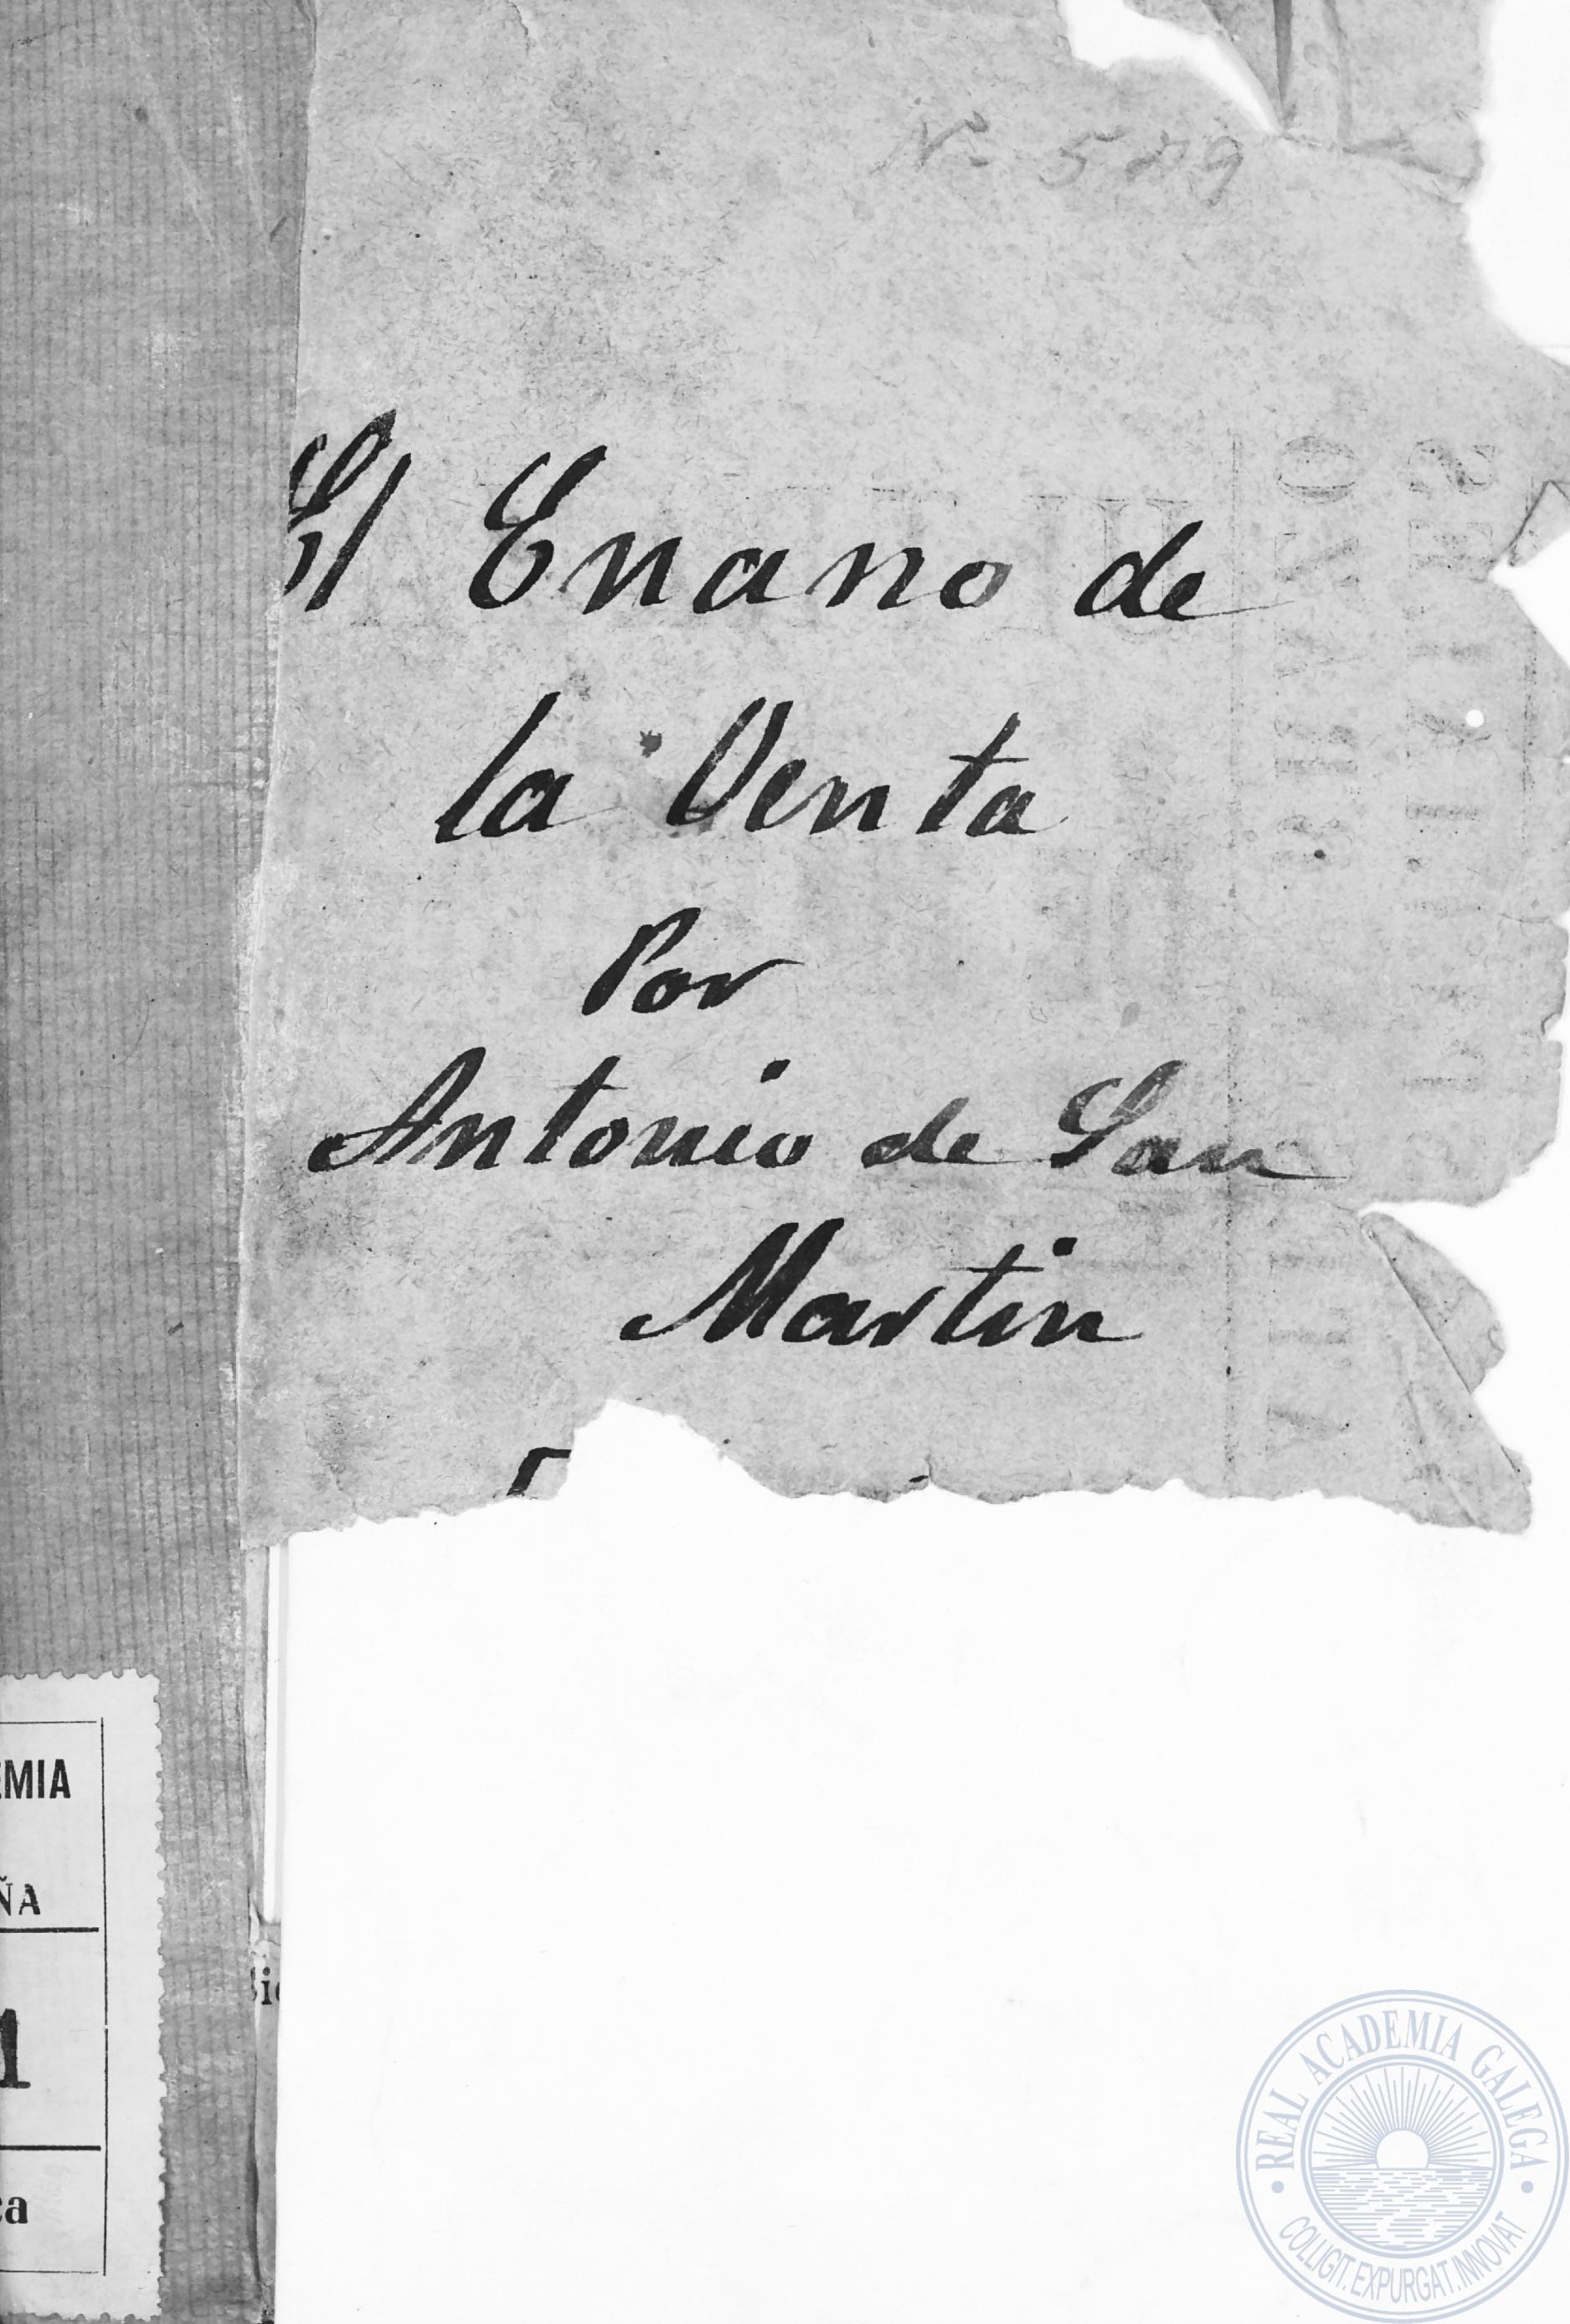 El Enano de
la Venta
Por
Antonio de San
Martin
EMIA
ÑA
1
ca
REAL ACADEMIA GALEGA
COLLIGIT.EXPURGAT.INNOVAT